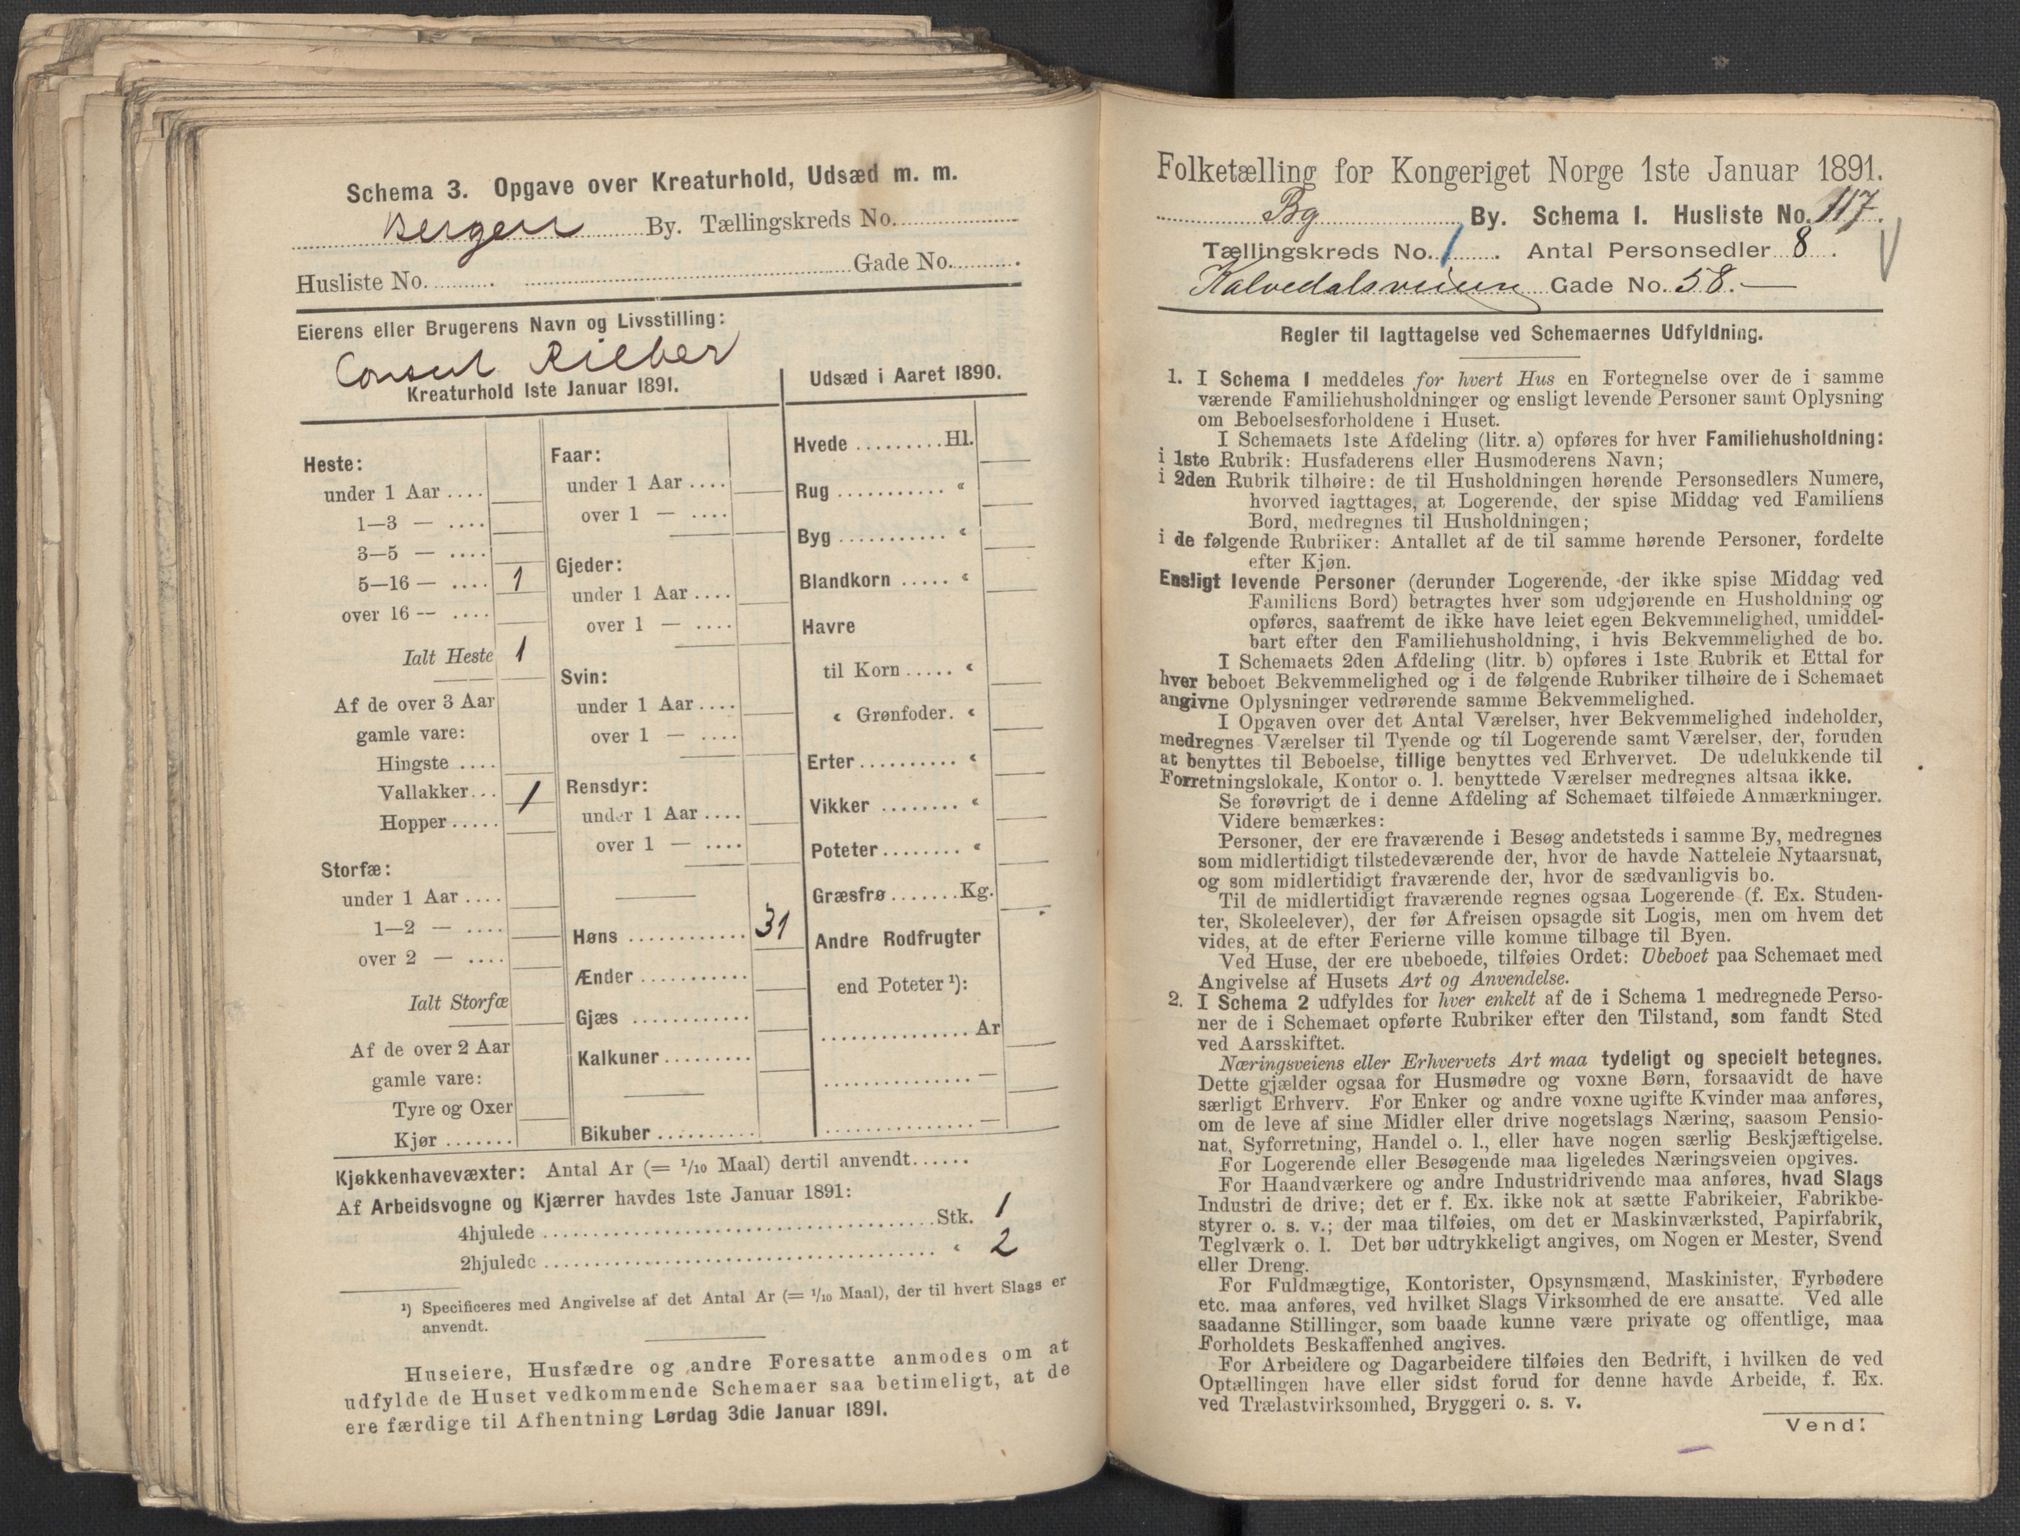 Schema 3. Opgave over Kreaturhold, Udsæd m. m.
Bergen By. Tællingskreds No.
Husliste No. Gade No.
Eierens eller Brugerens Navn og Livsstilling:
Consul Rieber
Kreaturhold 1ste Januar 1891.
Heste:
under 1 Aar
1—3 —
3—5 —
5—16 — 1
over 16 —
Ialt Heste 1
Af de over 3 Aar
gamle vare:
Hingste
Vallakker 1
Hopper
Storfæ:
under 1 Aar
1—2 —
over 2 —
Ialt Storfæ
Af de over 2 Aar
gamle vare:
Tyre og Oxer
Kjør
Faar:
under 1 Aar
over 1 —
Gjeder:
under 1 Aar
over 1 —
Svin:
under 1 Aar
over 1 —
Rensdyr:
under 1 Aar
over 1 —
Høns 31
Ænder
Gjæs
Kalkuner
Bikuber
Udsæd i Aaret 1890.
Hvede Hl.
Rug "
Byg "
Blandkorn "
Havre
til Korn "
" Grønfoder. "
Erter "
Vikker "
Poteter "
Græsfrø Kg.
Andre Rodfrugter
end Poteter ¹):
Ar
—
—
Kjøkkenhavevæxter: Antal Ar (= 1/10 Maal) dertil anvendt
Af Arbeidsvogne og Kjærrer havdes 1ste Januar 1891:
4hjulede Stk. 1
2hjulede " 2
¹) Specificeres med Angivelse af det Antal Ar (= 1/10 Maal), der til hvert Slags er
anvendt.
Huseiere, Husfædre og andre Foresatte anmodes om at
udfylde de Huset vedkommende Schemaer saa betimeligt, at de
ere færdige til Afhentning Lørdag 3die Januar 1891.
Folketælling for Kongeriget Norge 1ste Januar 1891.
Bg By. Schema 1. Husliste No. 117.
Tællingskreds No. 1. Antal Personsedler 8.
Kalvedalsveien Gade No. 58.—
Regler til Iagttagelse ved Schemaernes Udfyldning.
1. I Schema 1 meddeles for hvert Hus en Fortegnelse over de i samme
værende Familiehusholdninger og ensligt levende Personer samt Oplysning
om Beboelsesforholdene i Huset.
I Schemaets 1ste Afdeling (litr. a) opføres for hver Familiehusholdning:
i 1ste Rubrik: Husfaderens eller Husmoderens Navn;
i 2den Rubrik tilhøire: de til Husholdningen hørende Personsedlers Numere,
hvorved iagttages, at Logerende, der spise Middag ved Familiens
Bord, medregnes til Husholdningen;
i de følgende Rubriker: Antallet af de til samme hørende Personer, fordelte
efter Kjøn.
Ensligt levende Personer (derunder Logerende, der ikke spise Middag ved
Familiens Bord) betragtes hver som udgjørende en Husholdning og
opføres, saafremt de ikke have leiet egen Bekvemmelighed, umiddel-
bart efter den Familiehusholdning, i hvis Bekvemmelighed de bo.
I Schemaets 2den Afdeling (litr. b) opføres i 1ste Rubrik et Ettal for
hver beboet Bekvemmelighed og i de følgende Rubriker tilhøire de i Schemaet
angivne Oplysninger vedrørende samme Bekvemmelighed.
I Opgaven over det Antal Værelser, hver Bekvemmelighed indeholder,
medregnes Værelser til Tyende og til Logerende samt Værelser, der, foruden
at benyttes til Beboelse, tillige benyttes ved Erhvervet. De udelukkende til
Forretningslokale, Kontor o. l. benyttede Værelser medregnes altsaa ikke.
Se forøvrigt de i denne Afdeling af Schemaet tilføiede Anmærkninger.
Videre bemærkes:
Personer, der ere fraværende i Besøg andetsteds i samme By, medregnes
som midlertidigt tilstedeværende der, hvor de havde Natteleie Nytaarsnat,
og som midlertidigt fraværende der, hvor de sædvanligvis bo.
Til de midlertidigt fraværende regnes ogsaa Logerende (f. Ex. Studen-
ter, Skoleelever), der før Afreisen opsagde sit Logis, men om hvem det
vides, at de efter Ferierne ville komme tilbage til Byen.
Ved Huse, der ere ubeboede, tilføies Ordet: Ubeboet paa Schemaet med
Angivelse af Husets Art og Anvendelse.
2. I Schema 2 udfyldes for hver enkelt af de i Schema 1 medregnede Perso-
ner de i Schemaet opførte Rubriker efter den Tilstand, som fandt Sted
ved Aarsskiftet.
Næringsveiens eller Erhvervets Art maa tydeligt og specielt betegnes.
Dette gjælder ogsaa for Husmødre og voxne Børn, forsaavidt de have
særligt Erhverv. For Enker og andre voxne ugifte Kvinder maa anføres,
om de leve af sine Midler eller drive nogetslags Næring, saasom Pensio-
nat, Syforretning, Handel o. l., eller have nogen særlig Beskjæftigelse.
For Logerende eller Besøgende maa ligeledes Næringsveien opgives.
For Haandværkere og andre Industridrivende maa anføres, hvad Slags
Industri de drive; det er f. Ex. ikke nok at sætte Fabrikeier, Fabrikbe-
styrer o. s. v.; der maa tilføies, om det er Maskinværksted, Papirfabrik,
Teglværk o. l. Det bør udtrykkeligt angives, om Nogen er Mester, Svend
eller Dreng.
For Fuldmægtige, Kontorister, Opsynsmænd, Maskinister, Fyrbødere
etc. maa anføres, ved hvilket Slags Virksomhed de ere ansatte. Ved alle
saadanne Stillinger, som baade kunne være private og offentlige, maa
Forholdets Beskaffenhed angives.
For Arbeidere og Dagarbeidere tilføies den Bedrift, i hvilken de ved
Optællingen have eller sidst forud for denne havde Arbeide, f. Ex.
ved Trælastvirksomhed, Bryggeri o. s. v.
Vend!